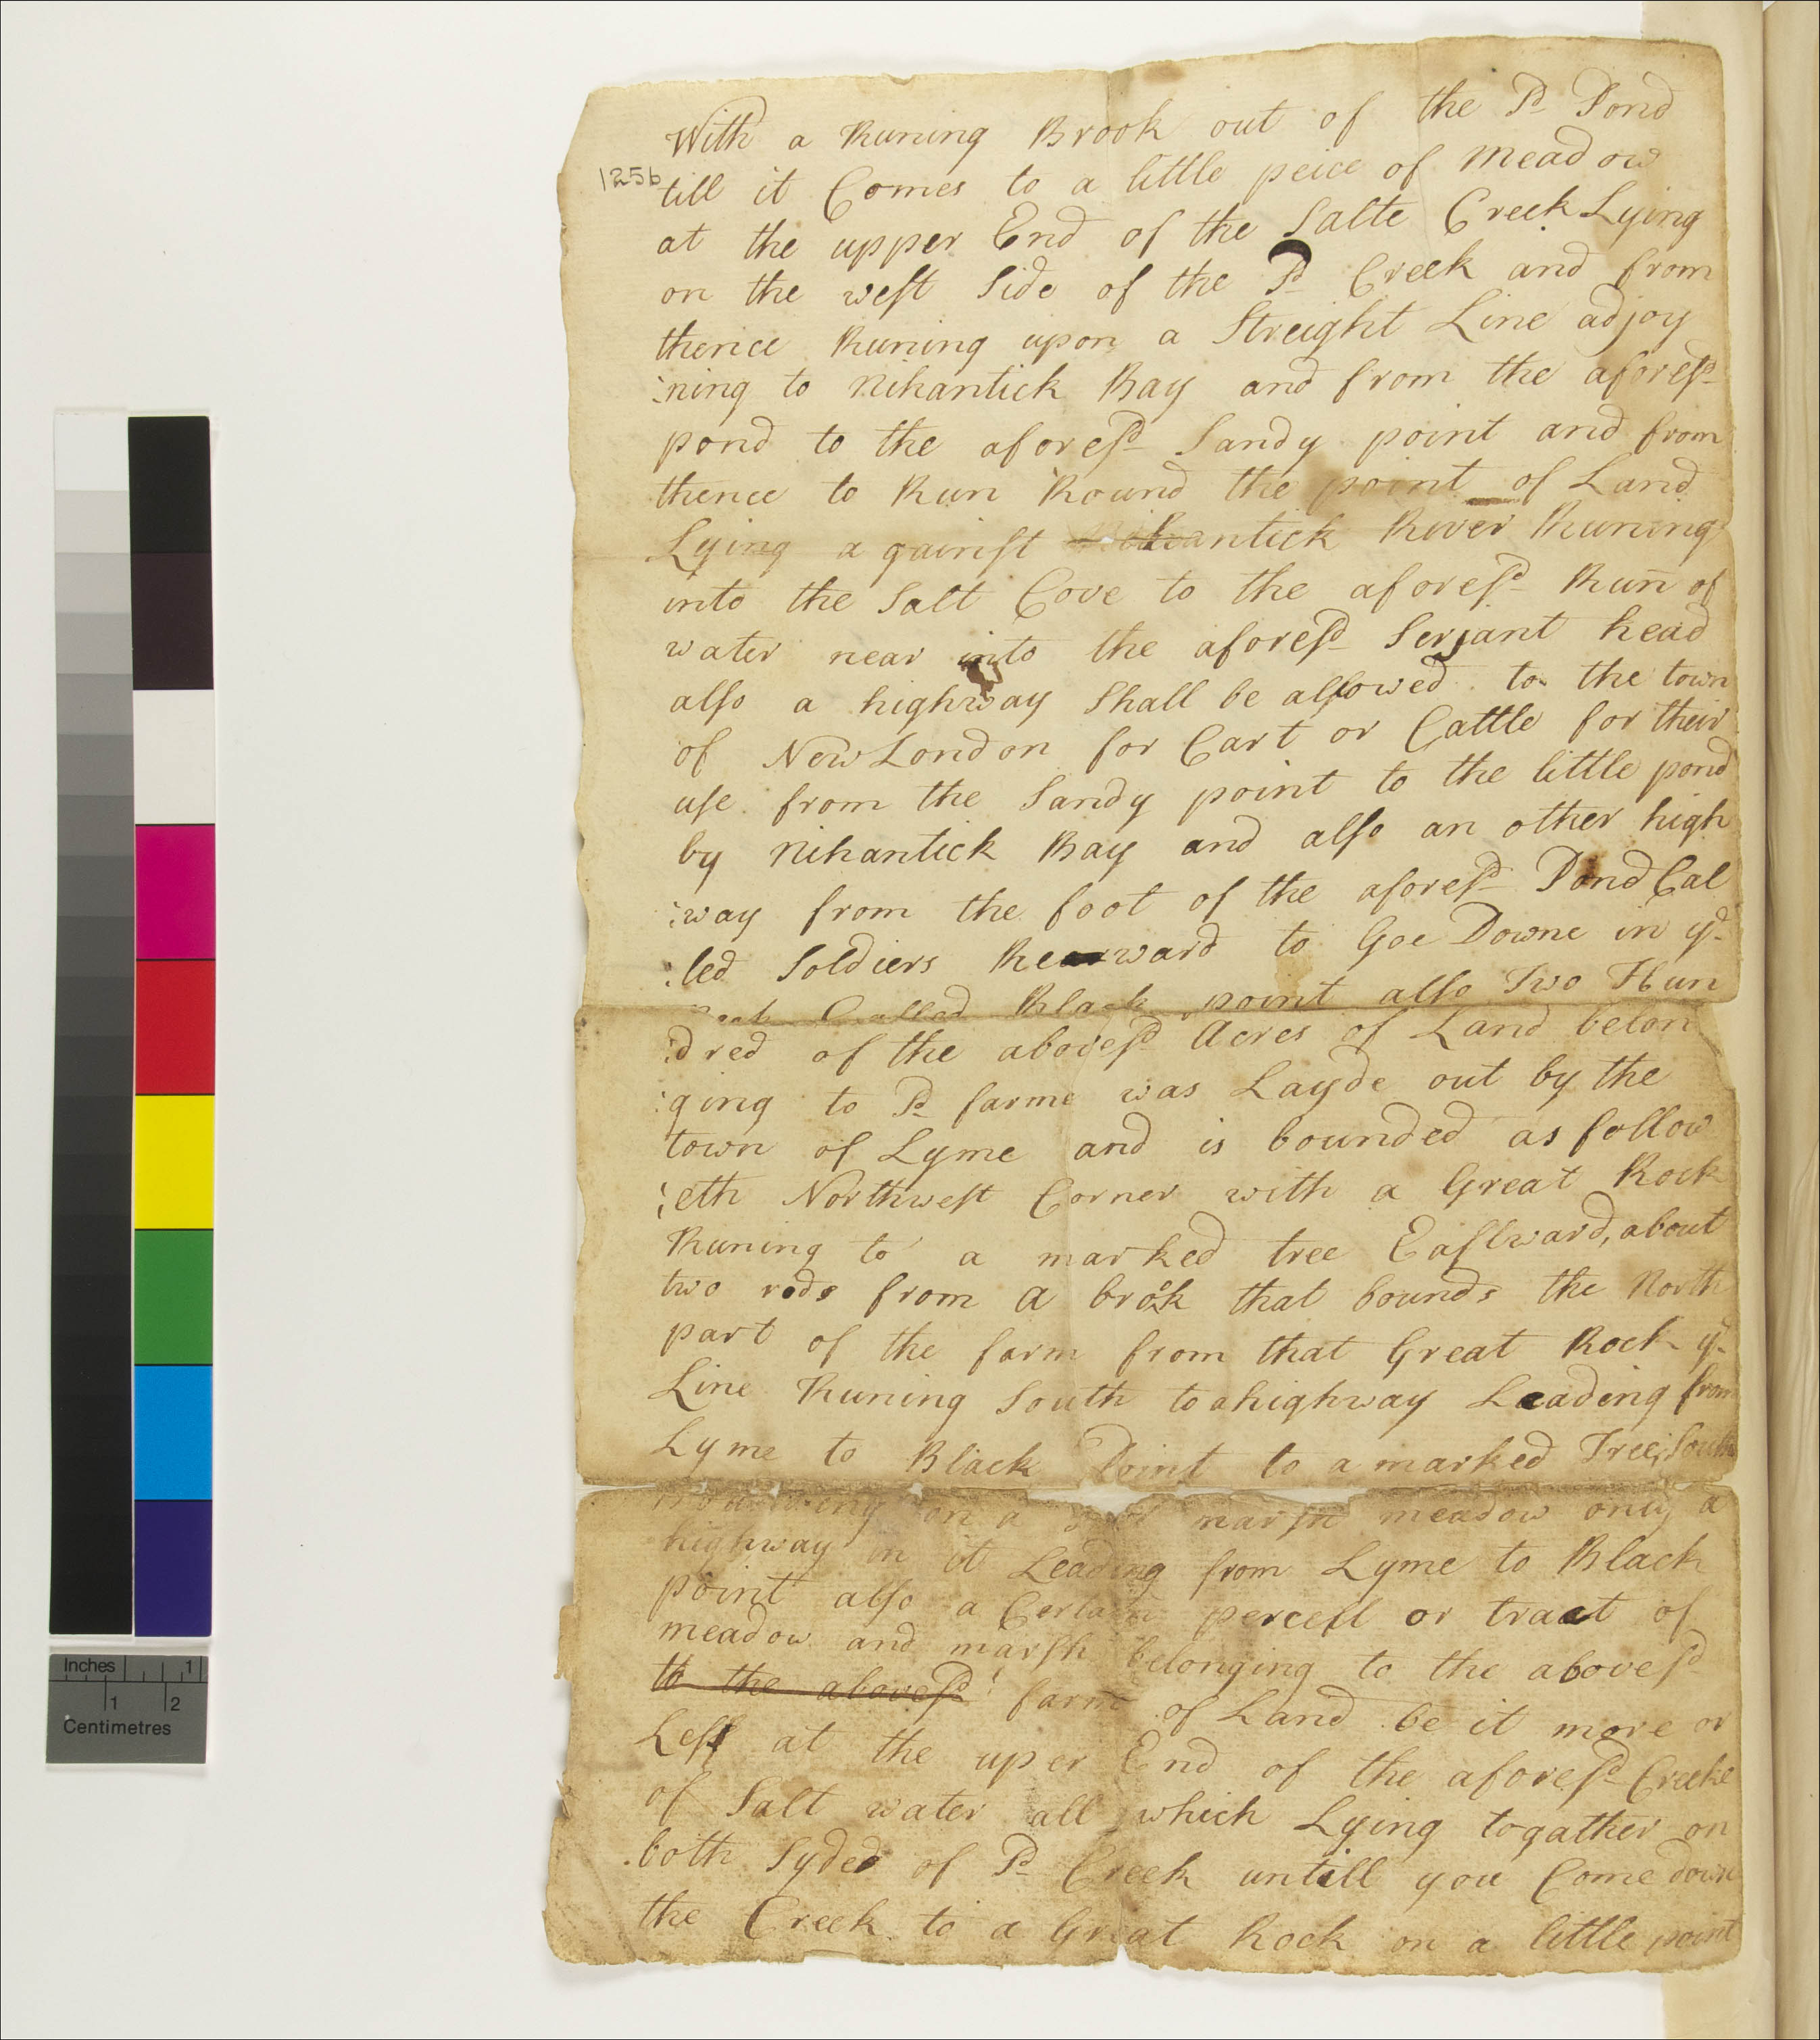 With a Runing Brook out of the Sd Pond
125b
till it Comes to a little peice of meadow
at the upper End of the Salte Creek Lying
on the west Side of the Sd Creek and from
thence Runing upon a Streight Line adjoy
:ning to Nihantick Bay and from the aforesd
pond to the aforesd Sandy point and from
thence to Run Round the point of Land
Lying a gainst Nihantick River Runing
into the Salt Cove to the aforesd Run of
water near into the aforesd Serjant head
also a highway Shall be allowed to the town
of New London for Cart or Cattle for their
use from the Sandy point to the little pond
by Nihantick Bay and also an other high
:way from the foot of the aforesd Pond Cal
:led Soldiers Rearward to Goe Downe in ye
neck Called Black point also Two Hun
:dred of the abovesd Acres of Land belon
:ging to Sd farme was Layde out by the
town of Lyme and is bounded as follow
:eth Northwest Corner with a Great Rock
Runing to a marked tree Eastward, about
two rods from a brook that bounds the North
part of the farm from that Great Rock ye
Line Runing South to a highway Leading from
Lyme to Black Point to a marked Tree, South
on a marsh meadow only a
highway in it Leading from Lyme to Black
point also a Certain percell or tract of
meadow and marsh belonging to the abovesd
to the abovesd farm of Land be it more or
Less at the uper End of the aforesd Creeke
of Salt water all which Lying togather on
both Sydes of Sd Creek untill you Come down
the Creek to a Great Rock on a little point
Inches 1
1 2
Centimetres